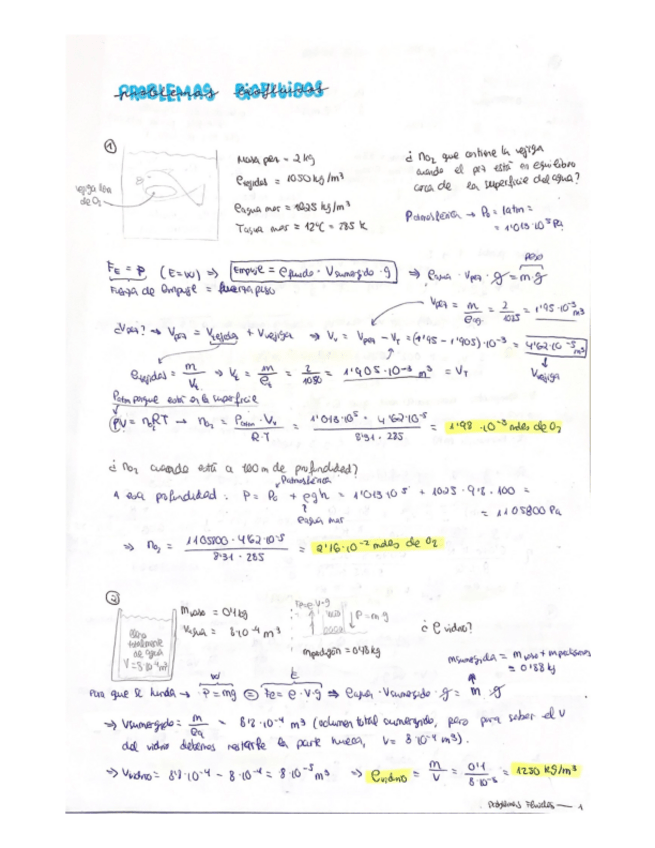 PROBLEMAS BIOFLUIDOS
①
vejiga llena de O₂
Masa pez = 2 kg
ρtejidos = 1050 kg/m³
ρagua mar = 1025 kg/m³
Tagua mar = 12ºC = 285 K
¿ nO₂ que contiene la vejiga
cuando el pez está en equilibrio
cerca de la superficie del agua?
Patmosférica → P₀ = 1atm =
= 1'013·10⁵ Pa
FE = P (E=W) ⇒ Empuje = ρfluido · Vsumergido · g ⇒ ρagua · Vpez · g = m·g
peso
Fuerza de empuje = fuerza peso
Vpez = m/ρag. = 2/1025 = 1'95·10⁻³ m³
¿Vpez? → Vpez = Vtejidos + Vvejiga ⇒ Vv = Vpez − VT = (1'95 − 1'905)·10⁻³ = 4'62·10⁻⁵ m³
Vvejiga
ρtejidos = m/Vt → Vt = m/ρt = 2/1050 = 1'905·10⁻³ m³ = VT
Patm porque está en la superficie
PV = nO₂RT → nO₂ = Patm · Vv / R·T = 1'013·10⁵ · 4'62·10⁻⁵ / 8'31 · 285 = 1'98·10⁻³ moles de O₂
¿ nO₂ cuando está a 100m de profundidad?
Patmosférica
A esa profundidad: P = P₀ + ρgh = 1'013·10⁵ + 1025 · 9'8 · 100 =
ρagua mar
= 1105800 Pa
⇒ nO₂ = 1105800 · 4'62·10⁻⁵ / 8'31 · 285 = 2'16·10⁻² moles de O₂
②
totalmente
de agua
V=8·10⁻⁴m³
mvaso = 0'4 kg
Vagua = 8·10⁻⁴ m³
P=mg
mperdigón = 0'48kg
¿ ρ vidrio?
msumergida = mvaso + mperdigones
= 0'88 kg
W E
Para que se hunda → P = mg = FE = ρ·V·g ⇒ ρagua · Vsumergido · g = m · g
⇒ Vsumergido = m/ρa = 8'8·10⁻⁴ m³ (volumen total sumergido, pero para saber el V
del vidrio debemos restarle la parte hueca, V= 8·10⁻⁴ m³).
⇒ Vvidrio = 8'8·10⁻⁴ − 8·10⁻⁴ = 8·10⁻⁵ m³ ⇒ ρvidrio = m/V = 0'4/8·10⁻⁵ = 1250 kg/m³
Problemas Fluidos — 1